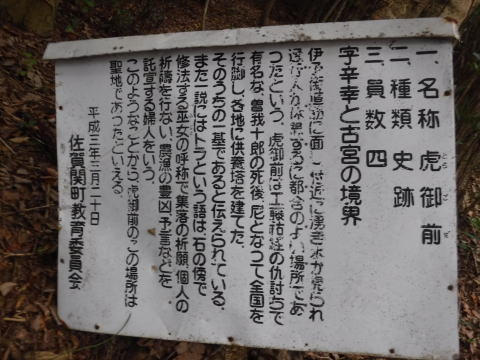 一、名称 虎御前
とら ご ぜ
二、種類 史跡
三、員数 四
字辛幸と古宮の境界
伊予街道筋に面し付近に湧き水が見られ
人が休憩するに都合のよい場所であ
つたという。虎御前は工藤祐経の仇討ちで
有名な、曽我十郎の死後、尼となつて全国を
行脚し、各地に供養塔を建てた。
そのうちの一基であると伝えられている。
また一説にはトラという語は、石の傍で
修法する巫女の呼称で集落の祈願、個人の
祈祷を行ない、農漁の豊凶予言などを
託宣する婦人をいう。
このようなことから、虎御前のこの場所は
聖地であつたといえる。
平成三年三月二十日
佐賀関町教育委員会